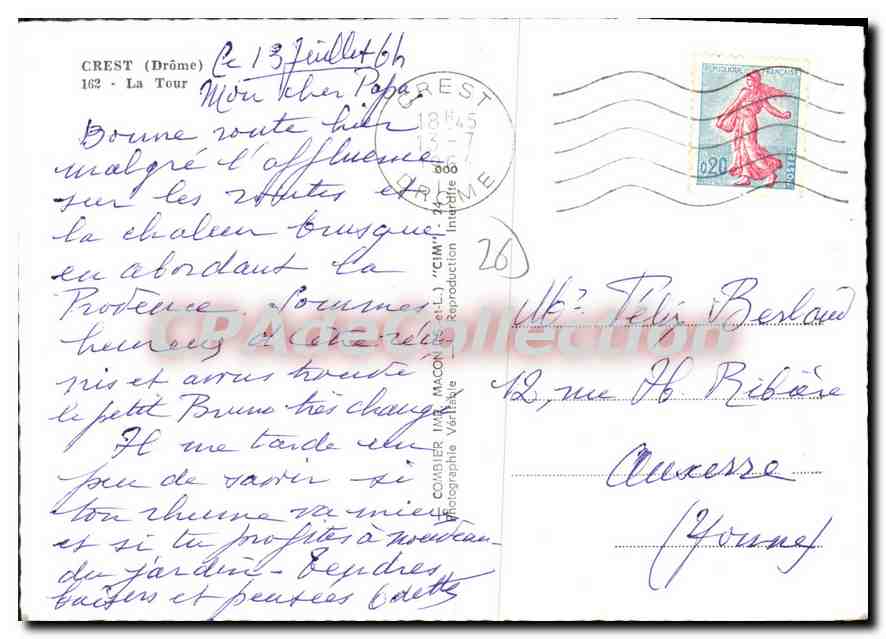 CREST (Drôme)
162 - La Tour
Ce 13 Juillet 64
Mon cher Papa,
Bonne route hier
malgré l'affluence
sur les routes et
la chaleur brusque
en abordant la
Provence. Sommes
heureux d'être réu-
nis et avons trouvé
le petit Bruno très changé
Il me tarde un
peu de savoir si
ton rhume va mieux
et si tu profites à nouveau
du jardin - Tendres
baisers et pensées Odette
CREST
18H45
13-7
1964
DROME
COMBIER IMP. MACON (S.-et-L.) "CIM" - 24
Photographie Véritable Reproduction Interdite
REPUBLIQUE FRANÇAISE
0,20
POSTES
26
Mr Félix Berland
12, rue Hb. Ribière
Auxerre
(Yonne)
CPAdeCollection